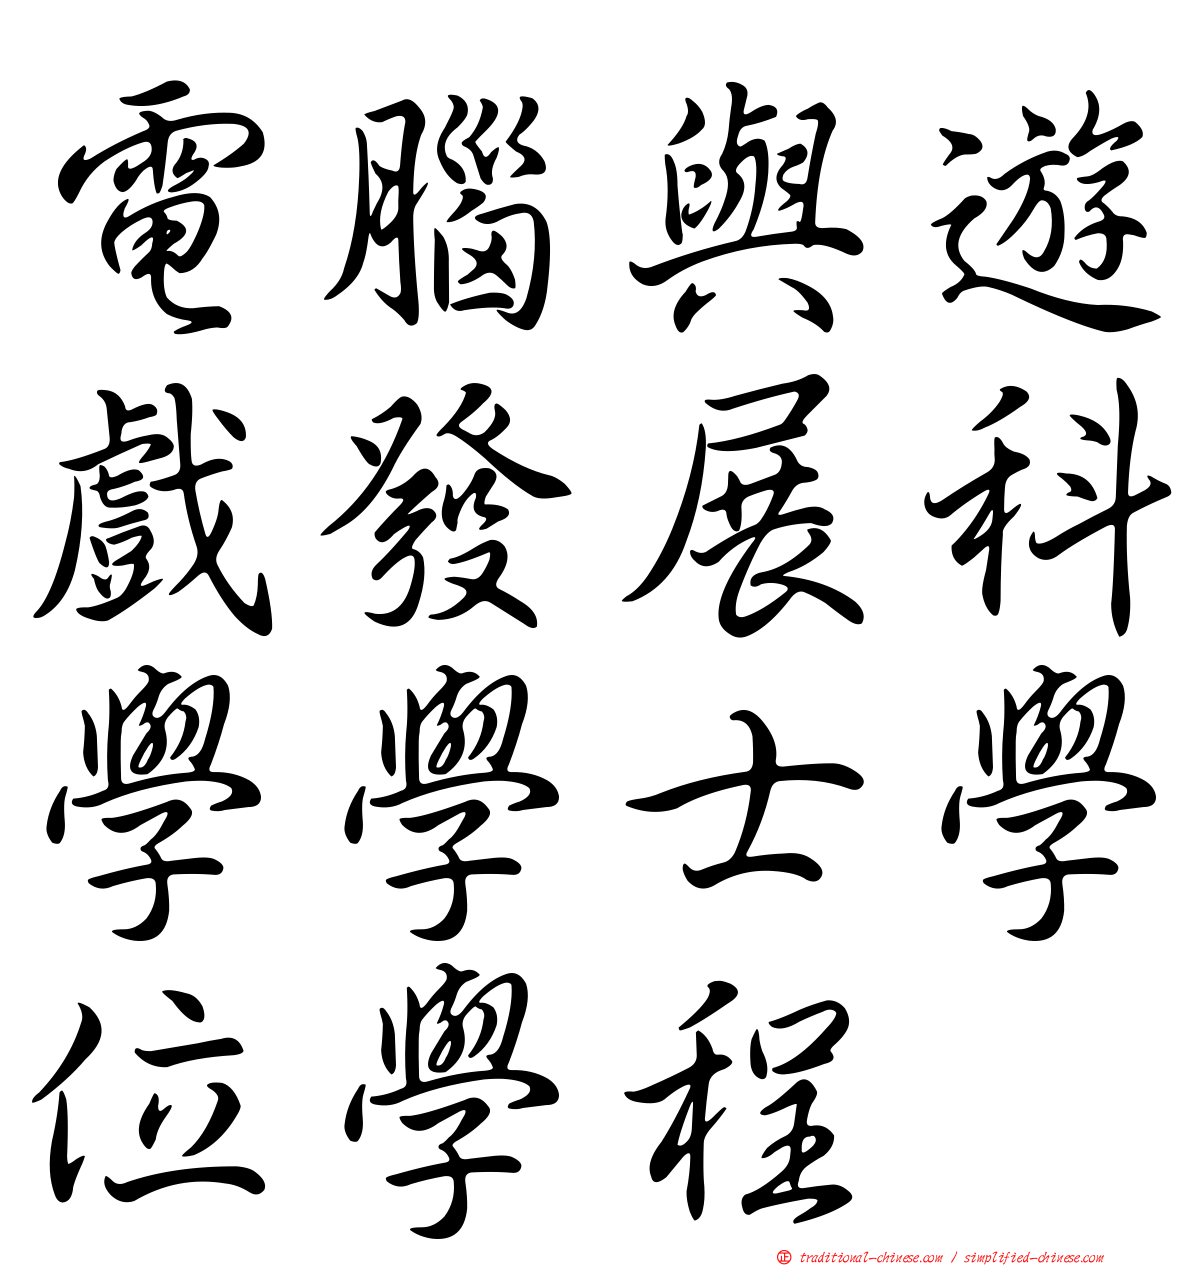 電腦與遊
戲發展科
學學士學
位學程
正 traditional-chinese.com / simplified-chinese.com